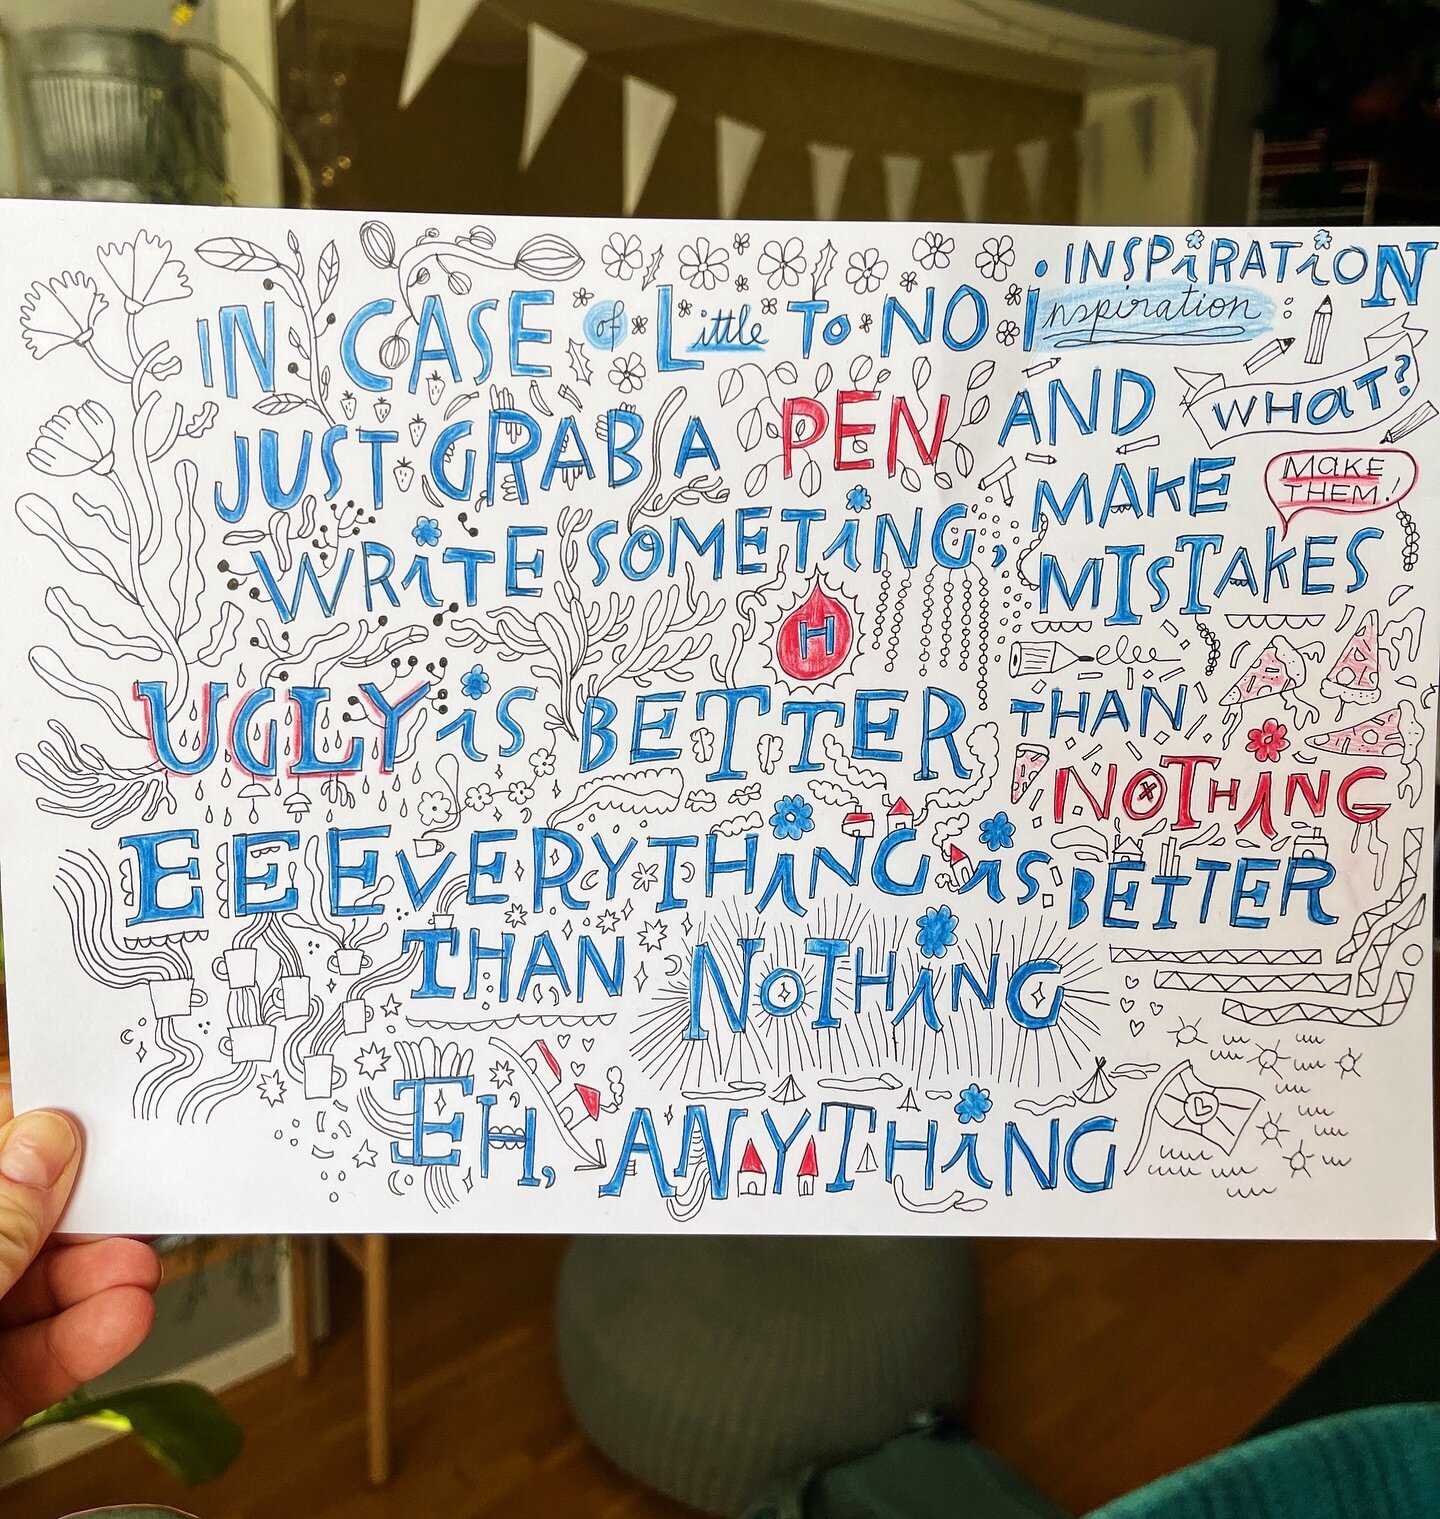 INSPiRATiON
IN CASE of Little To NO Inspiration
JUST GRAB A PEN AND WHAT?
MAKE MAKE THEM!
WRiTE SOMETiNG, MISTAKES
H
UGLY iS BETTER THAN NOTHiNG
EEEVERYTHiNG iS BETTER
THAN NOTHiNG
EH, ANYTHiNG